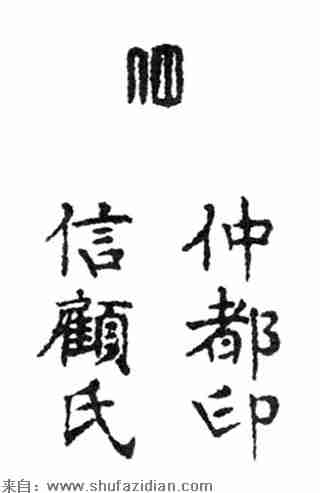 仲都印
信顧氏
来自：www.shufazidian.com